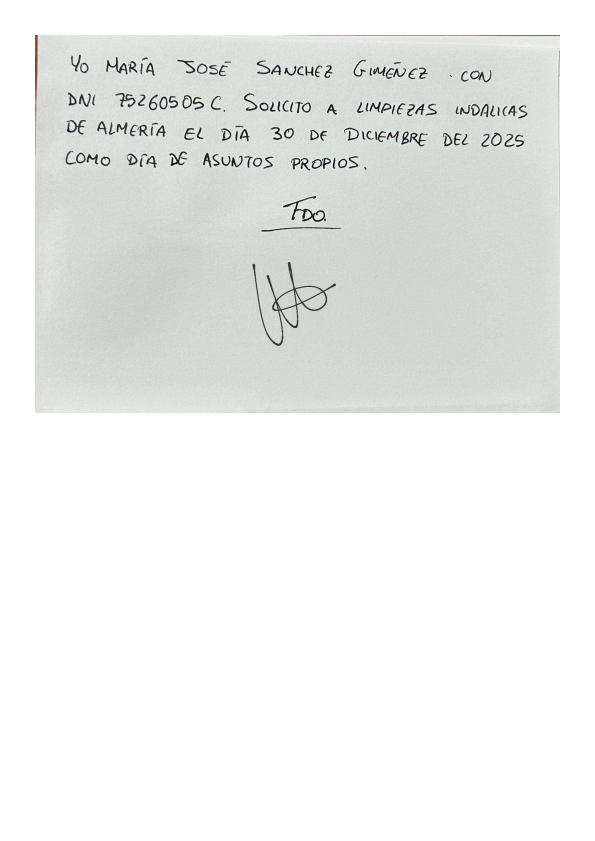 YO MARÍA JOSÉ SANCHEZ GIMÉNEZ. CON
DNI 75260505C. SOLICITO A LIMPIEZAS INDALICAS
DE ALMERÍA EL DÍA 30 DE DICIEMBRE DEL 2025
COMO DÍA DE ASUNTOS PROPIOS.
FDO.